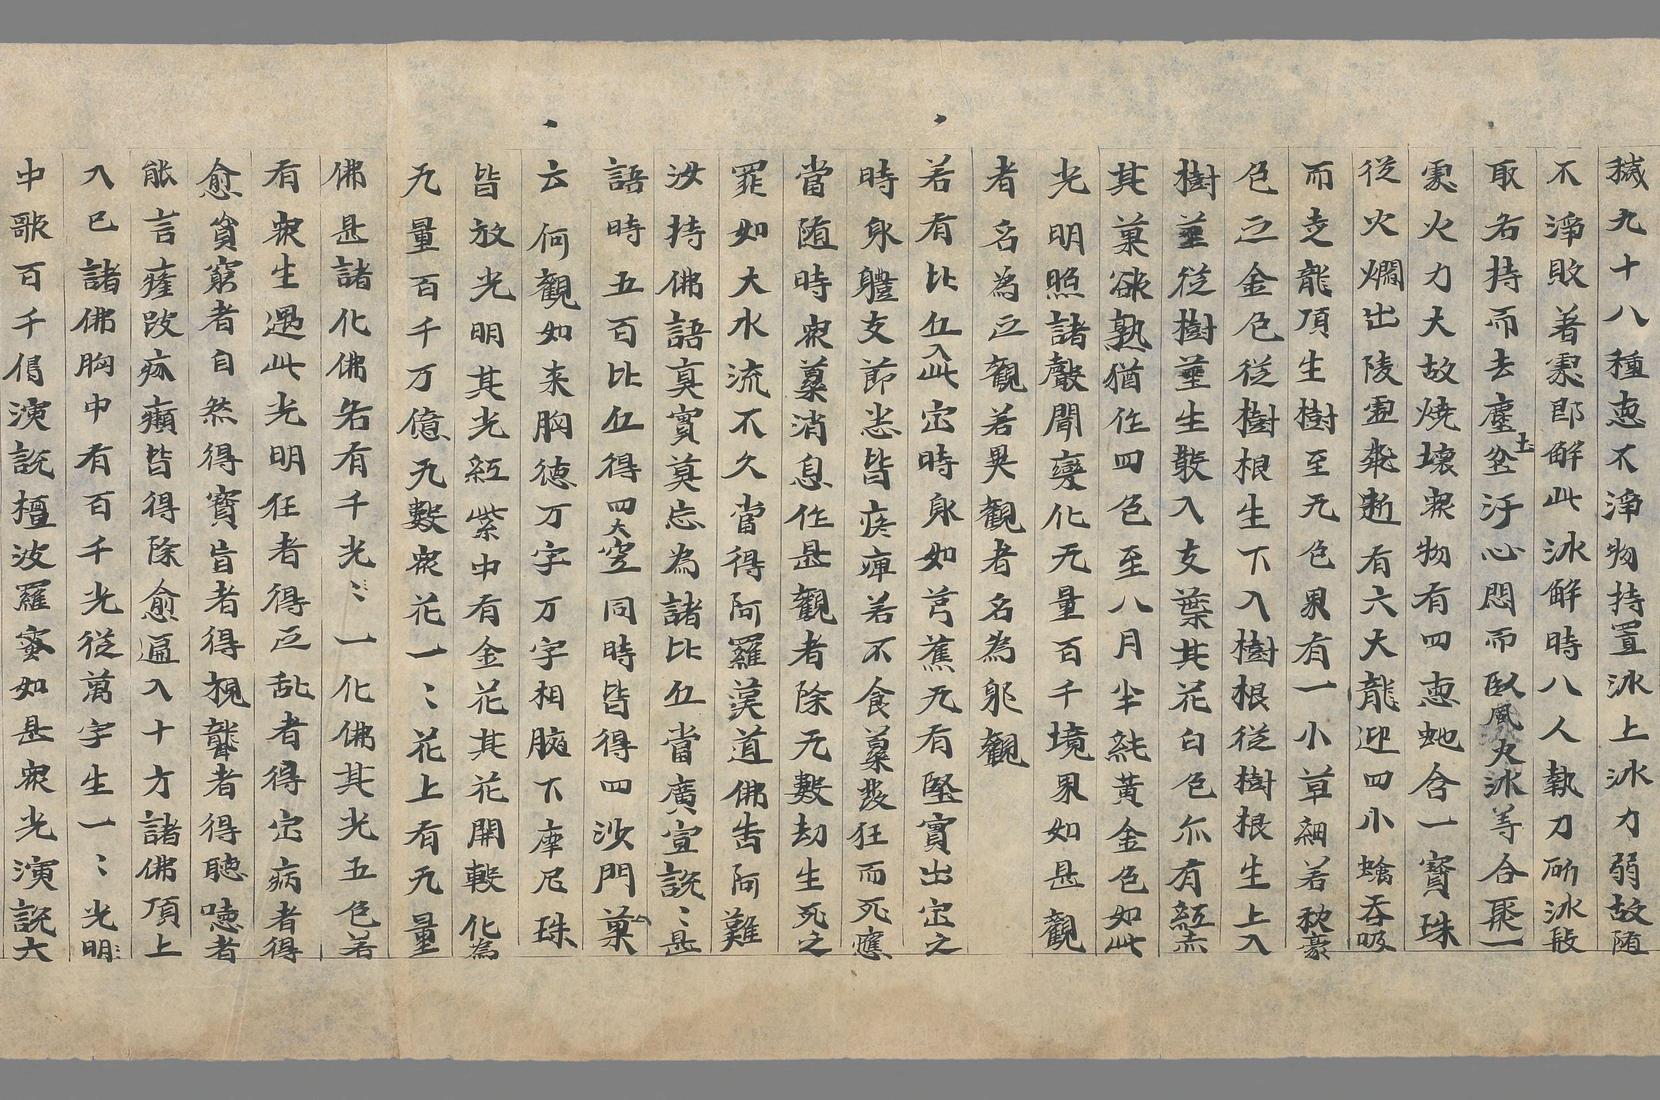 穢九十八種惡不淨物持置冰上冰力弱故隨
不淨敗著裹即解此冰解時八人執刀斫冰段
取各持而去塵坌土汙心悶而臥風火冰等合聚一
裹火力大故燒壞眾物有四惡虵含一寶珠
從火爓出陵虛飛逝有六大龍迎四小虵吞吸
而走龍頂生樹至无色界有一小草細若秋豪
色正金色從樹根生下入樹根從樹根生上入
樹莖從樹莖生散入支葉其花白色亦有紅赤
其菓欲熟猶作四色至八月半純黃金色如此
光明照諸聲聞變化无量百千境界如是觀
者名為正觀若異觀者名為邪觀
若有比丘入此定時身如芎蕉无有堅實出定之
時身體支節悉皆疼痺若不食藥發狂而死應
當隨時眾藥消息作是觀者除无數劫生死之
罪如大水流不久當得阿羅漢道佛告阿難
汝持佛語真實莫忘為諸比丘當廣宣說〻是
語時五百比丘得四大空同時皆得四沙門菓
云何觀如來胸德万字万字相腋下摩尼珠
皆放光明其光紅紫中有金花其花開敷化為
无量百千万億无數眾花一〻花上有无量
佛是諸化佛各有千光〻一化佛其光五色若
有眾生遇此光明狂者得正亂者得定病者得
愈貧窮者自然得寶盲者得視聾者得聽瘂者
能言癃跛疥癩皆得除愈遍入十方諸佛頂上
入已諸佛胸中有百千光從萬字生一〻光明〻
中歌百千偈演說檀波羅蜜如是眾光演說六